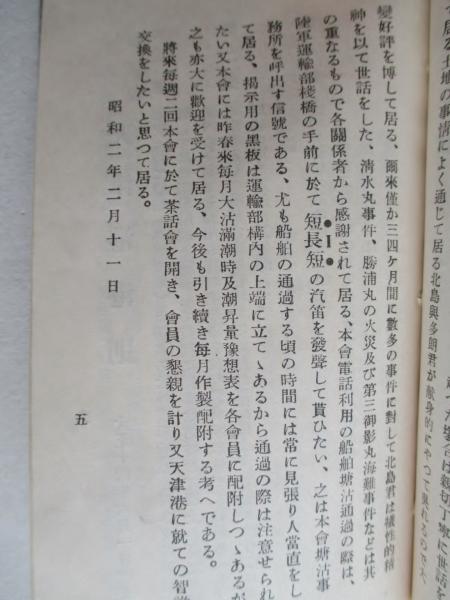 場合は親切丁寧に世話を
居る土地の事情によく通じて居る北島與多朗君が献身的にやつて呉れるので大
變好評を博して居る、爾來僅か三四ケ月間に數多の事件に對して北島君は犧牲的精
神を以て世話をした、淸水丸事件、勝浦丸の火災及び第三御影丸海難事件などは其
の重なるもので各關係者から感謝されて居る、本會電話利用の船舶塘沽通過の際は、
陸軍運輸部棧橋の手前に於て短長短の汽笛を發聲して貰ひたい、之は本會塘沽事
務所を呼出す信號である、尤も船舶の通過する頃の時間には常に見張り人當直をし
て居る、揭示用の黑板は運輸部構內の上端に立てゝあるから通過の際は注意せられ
たい又本會には昨春來每月大沽滿潮時及潮昇量豫想表を各會員に配附しつゝあるが
之も亦大に歡迎を受けて居る、今後も引き續き每月作製配附する考へである。
將來每週二回本會に於て茶話會を開き、會員の懇親を計り又天津港に就ての智
交換をしたいと思つて居る。
昭和二年二月十一日
五